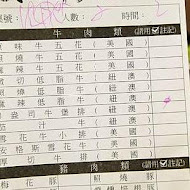 桌號： 人數： 2 時間：
牛 肉 類 (請用☑註記)
味 牛 五 花 ( 美 國 )
燒 牛 五 花 ( 美 國 )
辣 牛 五 花 ( 美 國 )
切 低 脂 牛 ( 紐 澳 )
燒 低 脂 牛 ( 紐 澳 )
辣 低 脂 牛 ( 紐 澳 )
司 牛 堡 排 ( 紐 澳 )
汁 牛 ( 紐 澳 )
花 牛 小 排 ( 美 國 )
安 格 斯 雪 花 牛 ( 美 國 )
厚 切 牛 排 ( 美 國 )
豬 肉 類 (請用☑註記)
梅 花 豚